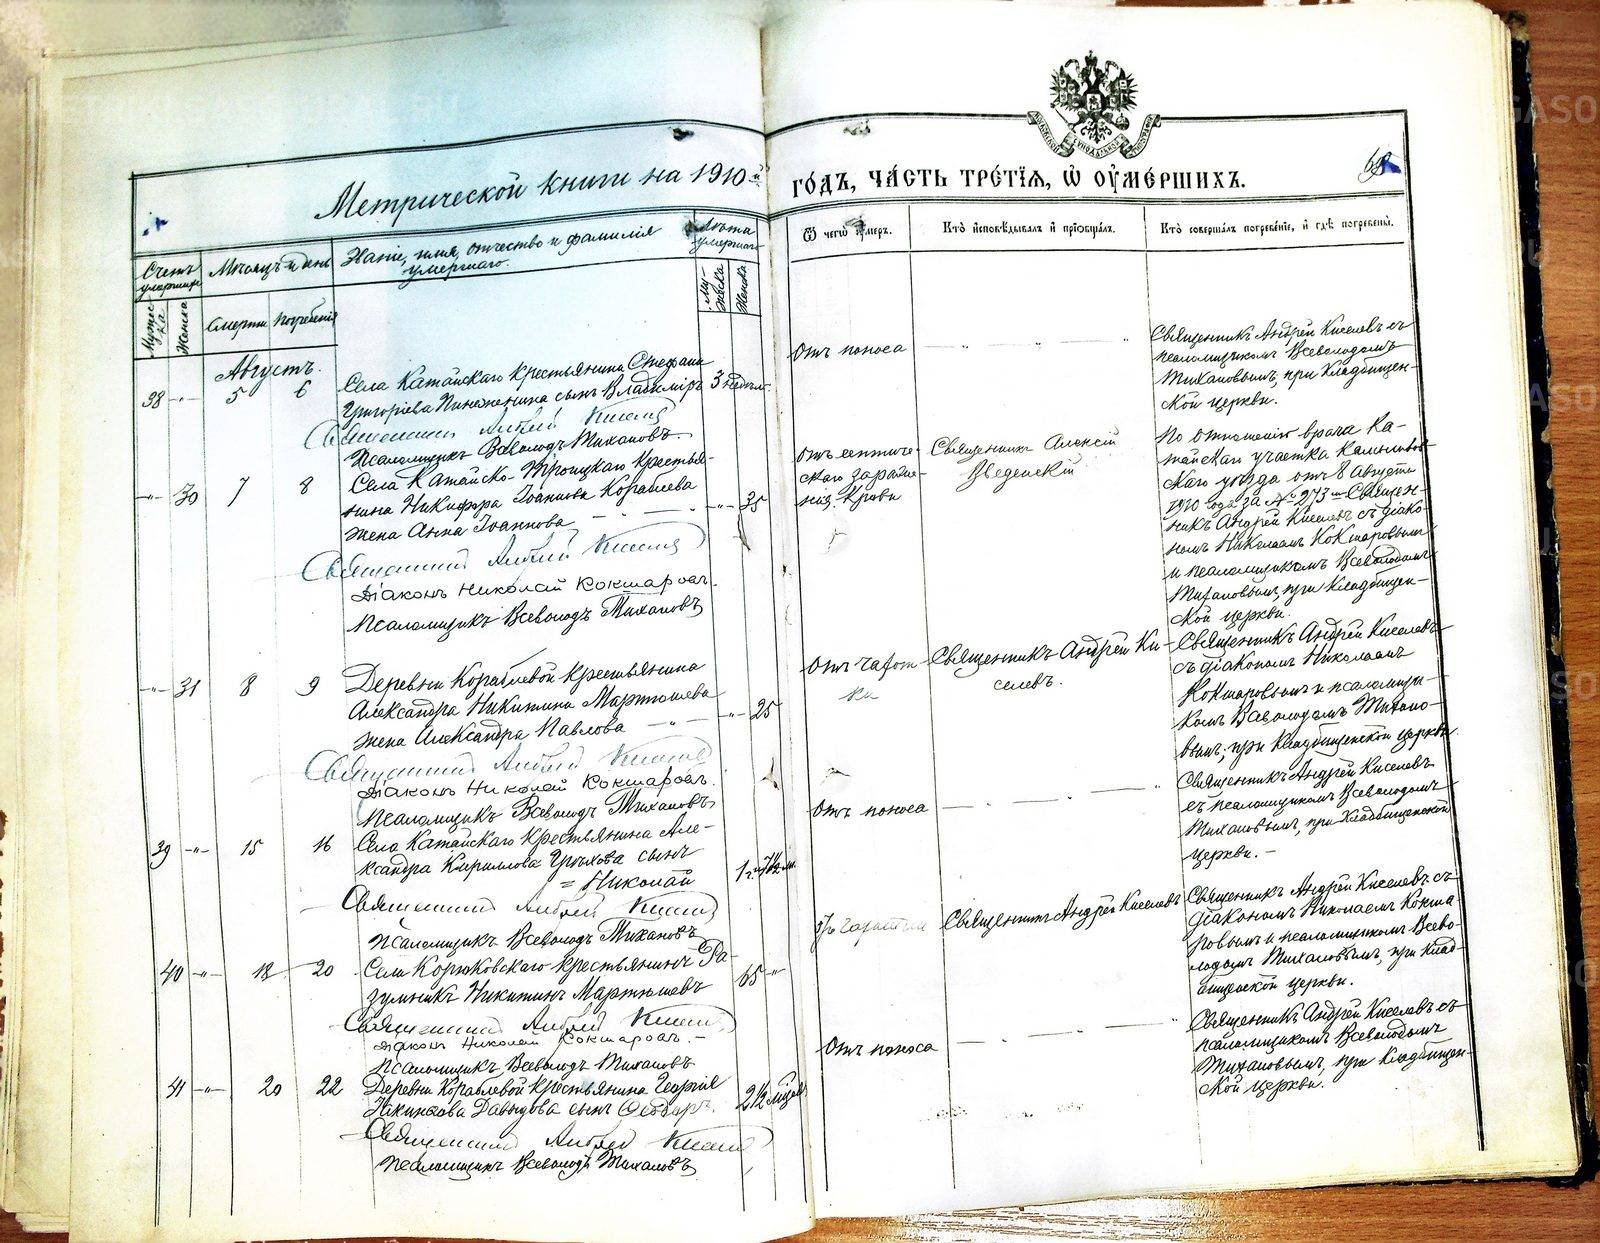 Метрической книги на 1910 й
го́дъ, ча́сть тре́тїѧ, ѡ҆ ᲂу҆ме́ршихъ.
Счетъ умершихъ
Мѣсяцъ и день
Званіе, имя, отчество и фамилія
умершаго.
Лѣта
умершаго
Ѿ чегѡ ᲂу҆меръ.
Кто̀ и҆сповѣ́дывалъ и҆ прїѡбща́лъ.
Кто̀ соверша́лъ погребе́нїе, и҆ гдѣ̀ погребены̀.
Мужеска
Женска
Смерти
Погребенія
Мужеска
Женска
Августъ.
38 -"- 5 6
Села Катайскаго крестьянина Стефана
Григоріева Пинженина сынъ Владиміръ
3 недѣл.
Священникъ Андрей Киселевъ
Псаломщикъ Всеволодъ Тихановъ.
Отъ поноса
Священникъ Андрей Киселевъ съ
псаломщикомъ Всеволодомъ
Тихановымъ, при кладбищен-
ской церкви.
-"- 30 7 8
Села Катайско-Троицкаго крестья-
нина Никифора Іоаннова Кораблева
жена Анна Іоаннова
-"- 35
Священникъ Андрей Киселевъ
Діаконъ Николай Кокшаровъ.
Псаломщикъ Всеволодъ Тихановъ
Отъ септиче-
скаго зараже-
нія крови
Священникъ Алексій
Введенскій
По отношенію врача Ка-
тайскаго участка Камышлов-
скаго уѣзда отъ 8 Августа
1910 года за № 273 Священ-
никъ Андрей Киселевъ съ діако-
номъ Николаемъ Кокшаровымъ
и псаломщикомъ Всеволодомъ
Тихановымъ, при кладбищен-
ской церкви.
-"- 31 8 9
Деревни Кораблевой крестьянина
Александра Никитина Мартюшева
жена Александра Павлова -"-
-"- 25
Священникъ Андрей Киселевъ
Діаконъ Николай Кокшаровъ.
Псаломщикъ Всеволодъ Тихановъ
Отъ чахот-
ки
Священникъ Андрей Ки-
селевъ.
Священникъ Андрей Киселевъ
съ діакономъ Николаемъ
Кокшаровымъ и псаломщи-
комъ Всеволодомъ Тихано-
вымъ, при кладбищенской церкви.
39 -"- 15 16
Села Катайскаго крестьянина Але-
ксандра Кириллова сынъ
= Николай
Священникъ Андрей Киселевъ
Псаломщикъ Всеволодъ Тихановъ
Отъ поноса
Священникъ Андрей Киселевъ
съ псаломщикомъ Всеволодомъ
Тихановымъ, при кладбищенской
церкви. -
40 -"- 18 20
Села Корюковскаго крестьянинъ Ра-
зумникъ Никитинъ Мартюшевъ
65 -"-
Священникъ Андрей Киселевъ
Діаконъ Николай Кокшаровъ. -
Псаломщикъ Всеволодъ Тихановъ
Священникъ Андрей Киселевъ
Священникъ Андрей Киселевъ съ
діакономъ Николаемъ Кокша-
ровымъ и псаломщикомъ Всево-
лодомъ Тихановымъ, при клад-
бищенской церкви.
41 -"- 20 22
Деревни Кораблевой крестьянина Георгія
Давыдова сынъ
2 1/2 мѣсяц.
Священникъ Андрей Киселевъ
Псаломщикъ Всеволодъ Тихановъ
Отъ поноса
Священникъ Андрей Киселевъ съ
псаломщикомъ Всеволодомъ
Тихановымъ, при кладбищен-
ской церкви.